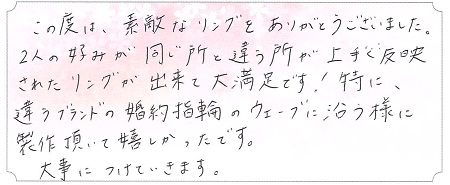 この度は、素敵なリングをありがとうございました。
2人の好みが同じ所と違う所が上手く反映
されたリングが出来て大満足です！特に、
違うブランドの婚約指輪のウェーブに沿う様に
製作頂いて嬉しかったです。
大事につけていきます。